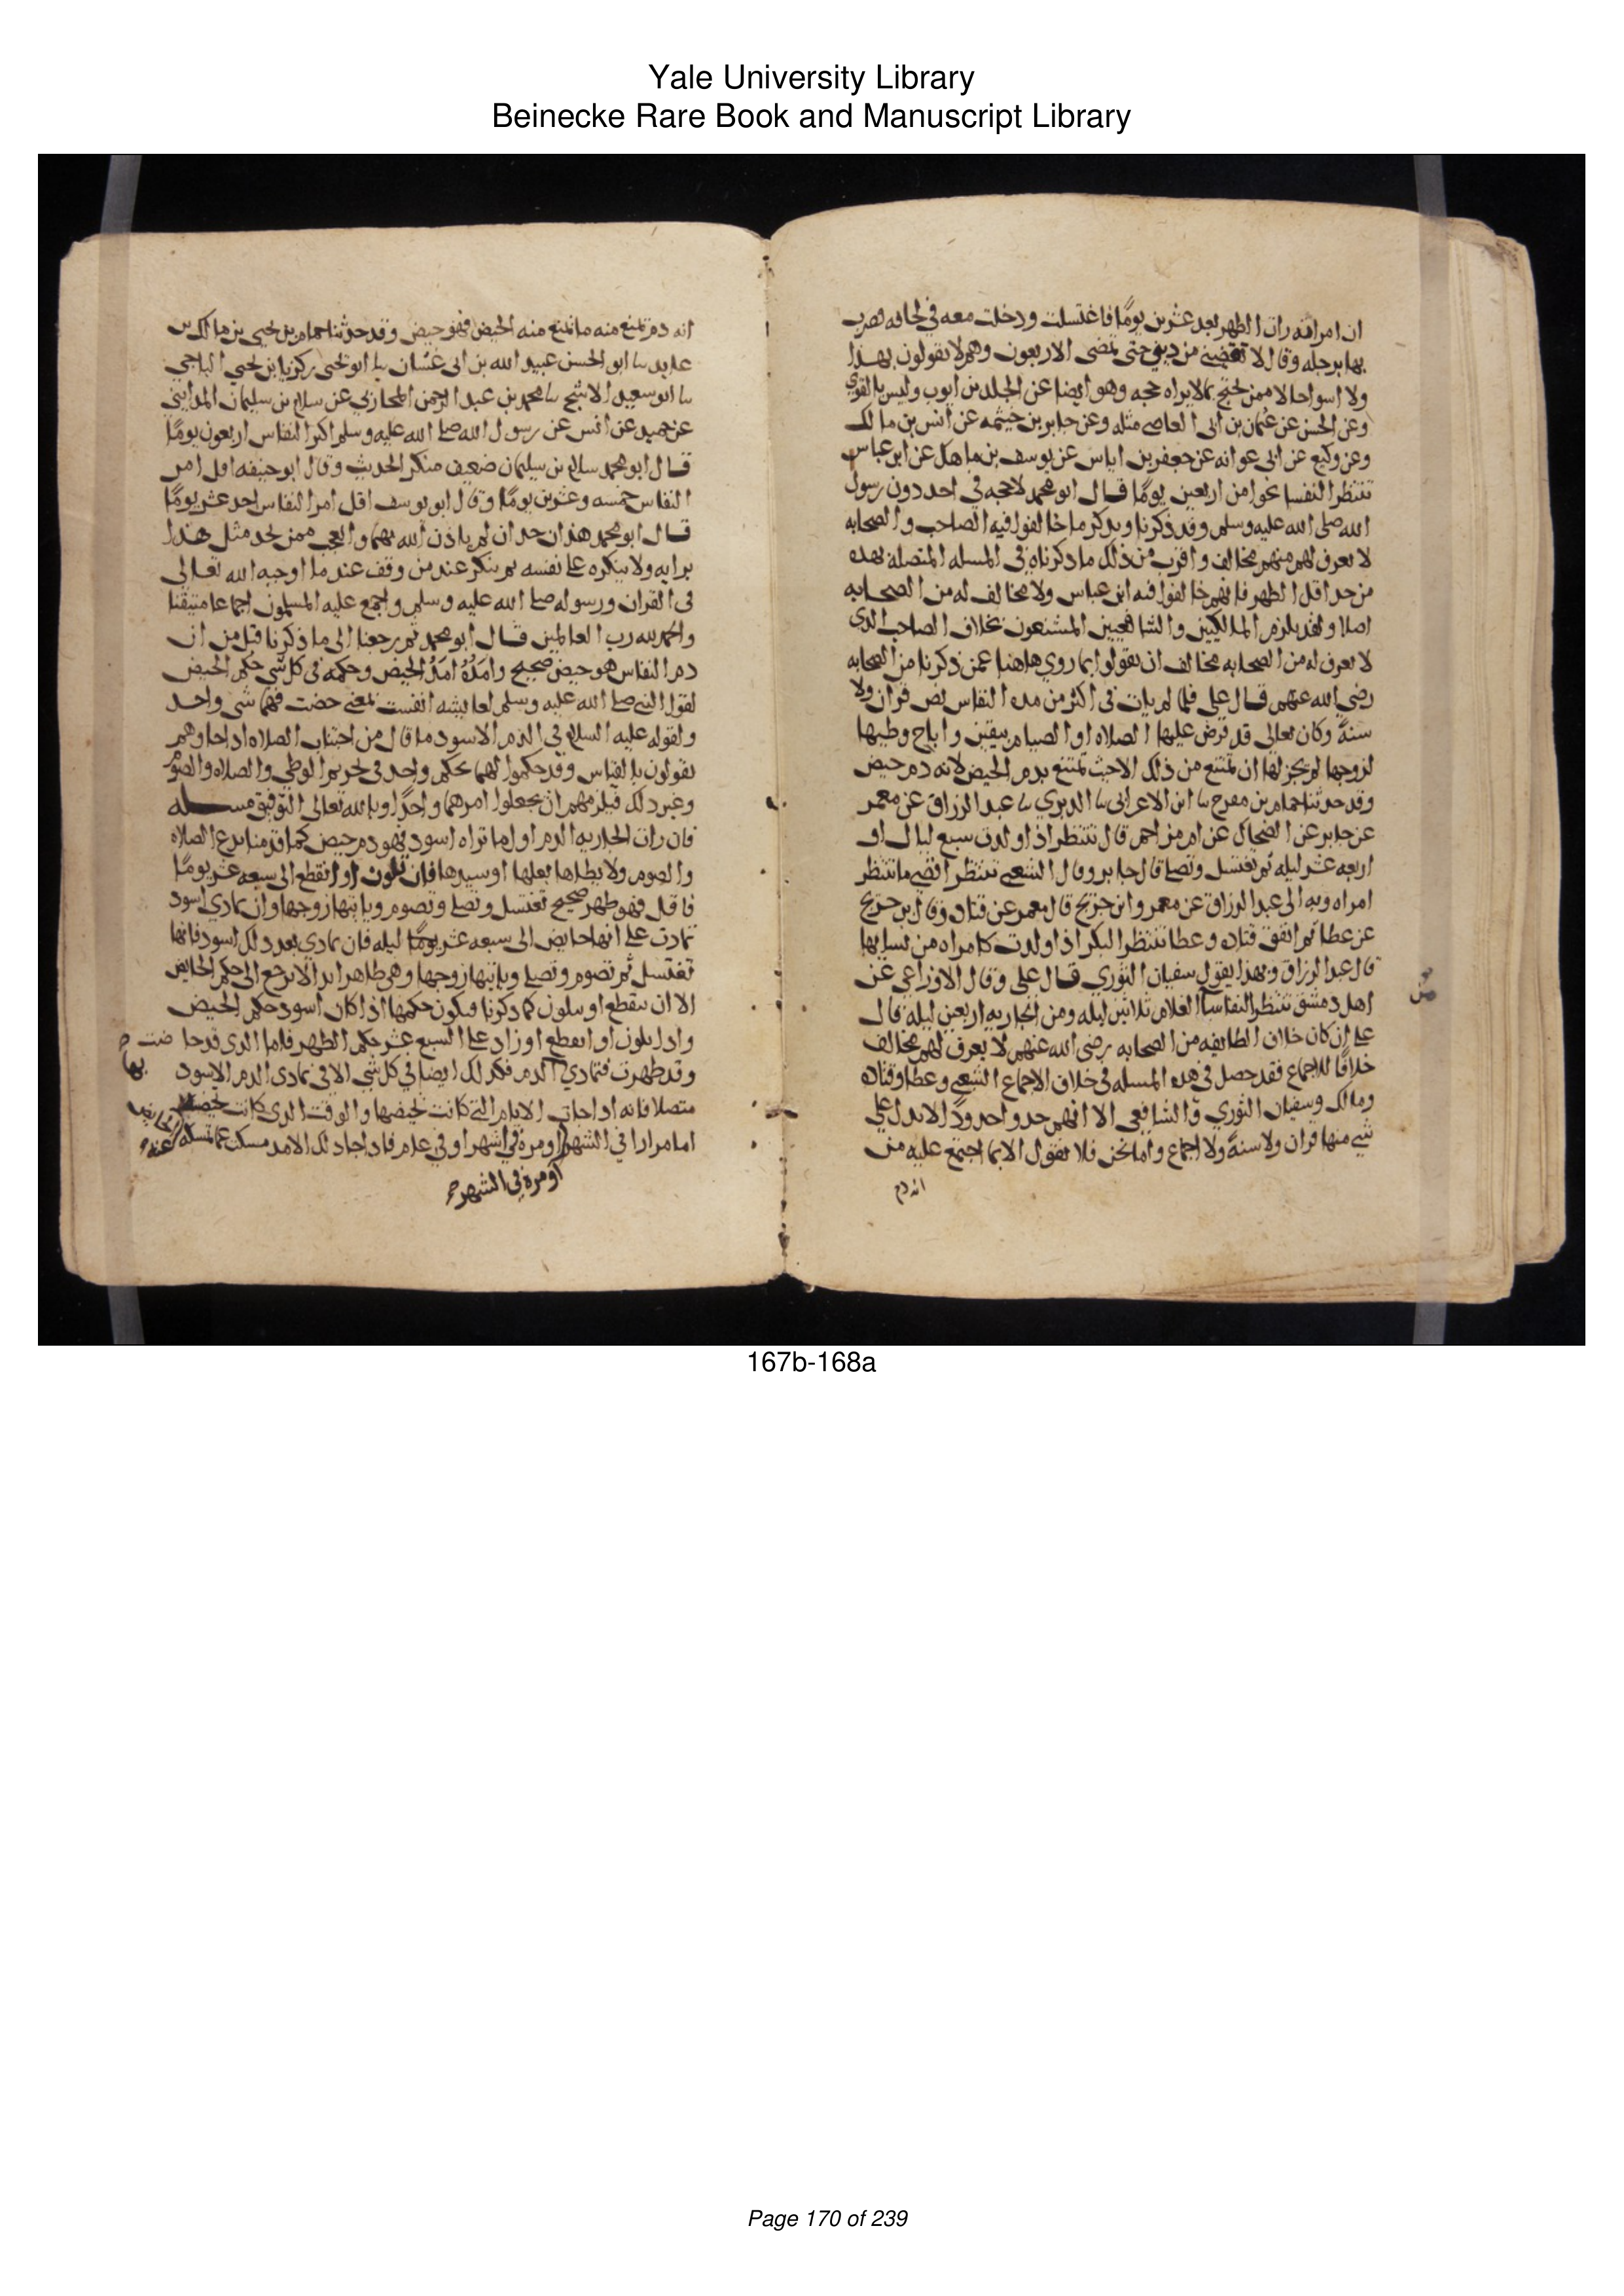 Yale University Library
Beinecke Rare Book and Manuscript Library
ان امراته رات الطهر بعد عشرين يومًا فاغتسلت ودخلت معه في لحافه فضرب
بها برجله وقال لا تغضي من ديني حتى تمضى الاربعون وهم لا يقولون بهذا
ولا اسوا حالا ممن يحتج بما لا يراه حجه وهو ايضا عن الجلد بن ايوب وليس بالقوي
وعن الحسن عن عثمان بن ابى العاصي مثله وعن جابر بن خيثمه عن انس بن مالك
وعن وكيع عن ابى عوانه عن جعفر بن اياس عن يوسف بن ماهك عن ابن عباس
تنتظر النفسا نحوا من اربعين يومًا قال ابو محمد لا حجه في احد دون رسول
الله صلى الله عليه وسلم وقد ذكرنا ويدكر ما خالفوا فيه الصاحب والصحابه
لا يعرف لهم منهم مخالف واقرب من ذلك ما ذكرناه في المسله المتصله بهده
من حد اقل الطهر فانهم خالفوا فيه ابن عباس ولا مخالف له من الصحابه
اصلا ولقد يلزم المالكيين والشافعيين المشنعون بخلاف الصاحب الدى
لا يعرف له من الصحابه مخالف ان يقولوا بما روي هاهنا عمن ذكرنا من الصحابه
رضي الله عنهم قال على فلما لم يات في اكثر من مده النفاس نص قران ولا
سنةً وكان تعالى قد فرض عليها الصلاه او الصيام بيقين واباح وطيها
لزوجها لم يجز لها ان تمتنع من ذلك الا حيث تمتنع بدم الحيض لانه دم حيض
وقد حدثنا حمام بن مفرج نا ابن الاعرابى نا الدبري نا عبد الرزاق عن معمر
عن جابر عن الضحاك عن ابن مزاحم قال تنتظر اذا ولدت سبع ليال او
اربعه عشر ليله ثم تغتسل وتصلى قال جابر وقال الشعبي تنتظر اقصى ما تنتظر
امراه وبه الى عبد الرزاق عن معمر وابن جريج قال معمر عن قتاده وقال ابن جريج
عن عطا ثم اتفق قتاده وعطا تنتظر البكر اذا ولدت كامراه من نسايها
قال عبد الرزاق وبهذا يقول سفيان الثوري قال على وقال الاوزاعي عن
اهل دمشق تنتظر النفاسا الغلام ثلاثين ليله ومن الجاريه اربعين ليله قال
على ان كان خلاف الطايفه من الصحابه رضى الله عنهم لا يعرف لهم مخالف
خلافًا للاجماع فقد حصل في هده المسله في خلاف الاجماع الشعبي وعطا وقتاده
ومالك وسفيان الثوري والشافعى الا انهم حدوا حدودًا لا يدل على
شي منها قران ولا سنةً ولا اجماع واما نحن فلا نقول الا بما اجتمع عليه من
انه دم
انه دم تمنع منه ما تمنع منه الحيض فهو حيض وقد حدثنا حمام بن يحيى بن مالك بن
عايد نا ابو الحسن عبيد الله بن ابى غسان نا ابو يحيى زكريا بن يحيي الباجي
نا ابو سعيد الاشج نا محمد بن عبد الرحمن المحاربي عن سلام بن سليمان المدايني
عن حميد عن انس عن رسول الله صلى الله عليه وسلم اكثر النفاس اربعون يومًا
قال ابو محمد سلام بن سليمان ضعيف منكر الحديث وقال ابو حنيفه اقل امر
النفاس خمسه وعشرين يومًا وقال ابو يوسف اقل امر النفاس احد عشر يومًا
قال ابو محمد هذان حدان لم ياذن الله بهما والعجب ممن يحد مثل هذا
برايه ولا ينكره على نفسه ثم ينكر عند من وقف عند ما اوجبه الله تعالى
في القران ورسوله صلى الله عليه وسلم واجمع عليه المسلمون اجماعا متيقنا
والحمد لله رب العالمين قال ابو محمد ثم رجعنا الى ما ذكرنا قبل من ان
دم النفاس هو حيض صحيح وامَدُهُ امَدُ الحيض وحكمه في كل شي حكم الحيض
لقول النبي صلى الله عليه وسلم لعايشه انفست بمعنى حضت فهما شى واحد
ولقوله عليه السلام في الدم الاسود ما قال من اجتناب الصلاه اداجا وهم
يقولون بالقياس وقد حكموا لهما بحكم واحد في تحريم الوطي والصلاه والصوم
وغير دلك فيلزمهم ان يجعلوا امدهما واحدًا وبالله تعالى التوفيق مسله
فان رات الجاريه الدم اول ما تراه اسود فهو دم حيض كما قدمنا تدع الصلاه
والصوم ولا يطاها بعلها او سيدها فان تلون او انقطع الى سبعه عشر يومًا
فاقل فهو طهر صحيح تغتسل وتصلى وتصوم وياتيها زوجها وان تمادى اسود
تمادت على انها حايض الى سبعه عشر يومًا ليله فان تمادي بعد دلك اسود فانها
تغتسل ثم تصوم وتصلى وياتيها زوجها وهى طاهر ابدا لا ترجع الى حكم الحايض
الا ان ينقطع او يتلون كما دكرنا فيكون حكمها اذا كان اسود حكم الحيض
وادا تلون او انقطع او زاد على السبع عشر حكم الطهر فاما الدى قد حا ضت
وقد طهرت فتمادي الدم فكدلك ايضا في كل شي الا في تمادى الدم الاسود بها
متصلا فانه اداجات الايام التي كانت تحيضها والوقت الدى كانت تحيضه
اما مرارا في الشهر او مرة في اشهر او في عام فاداجا دلك الامد مسك عما تمسك عنه
او مرة في الشهر
167b-168a
Page 170 of 239